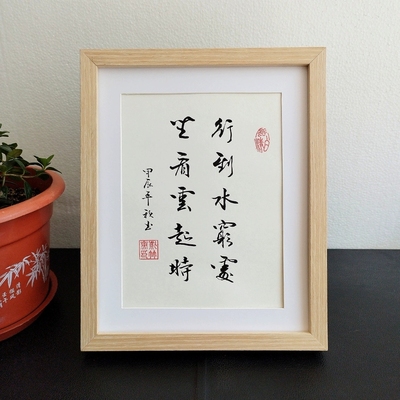 行到水窮處
坐看雲起時
甲辰年秋书